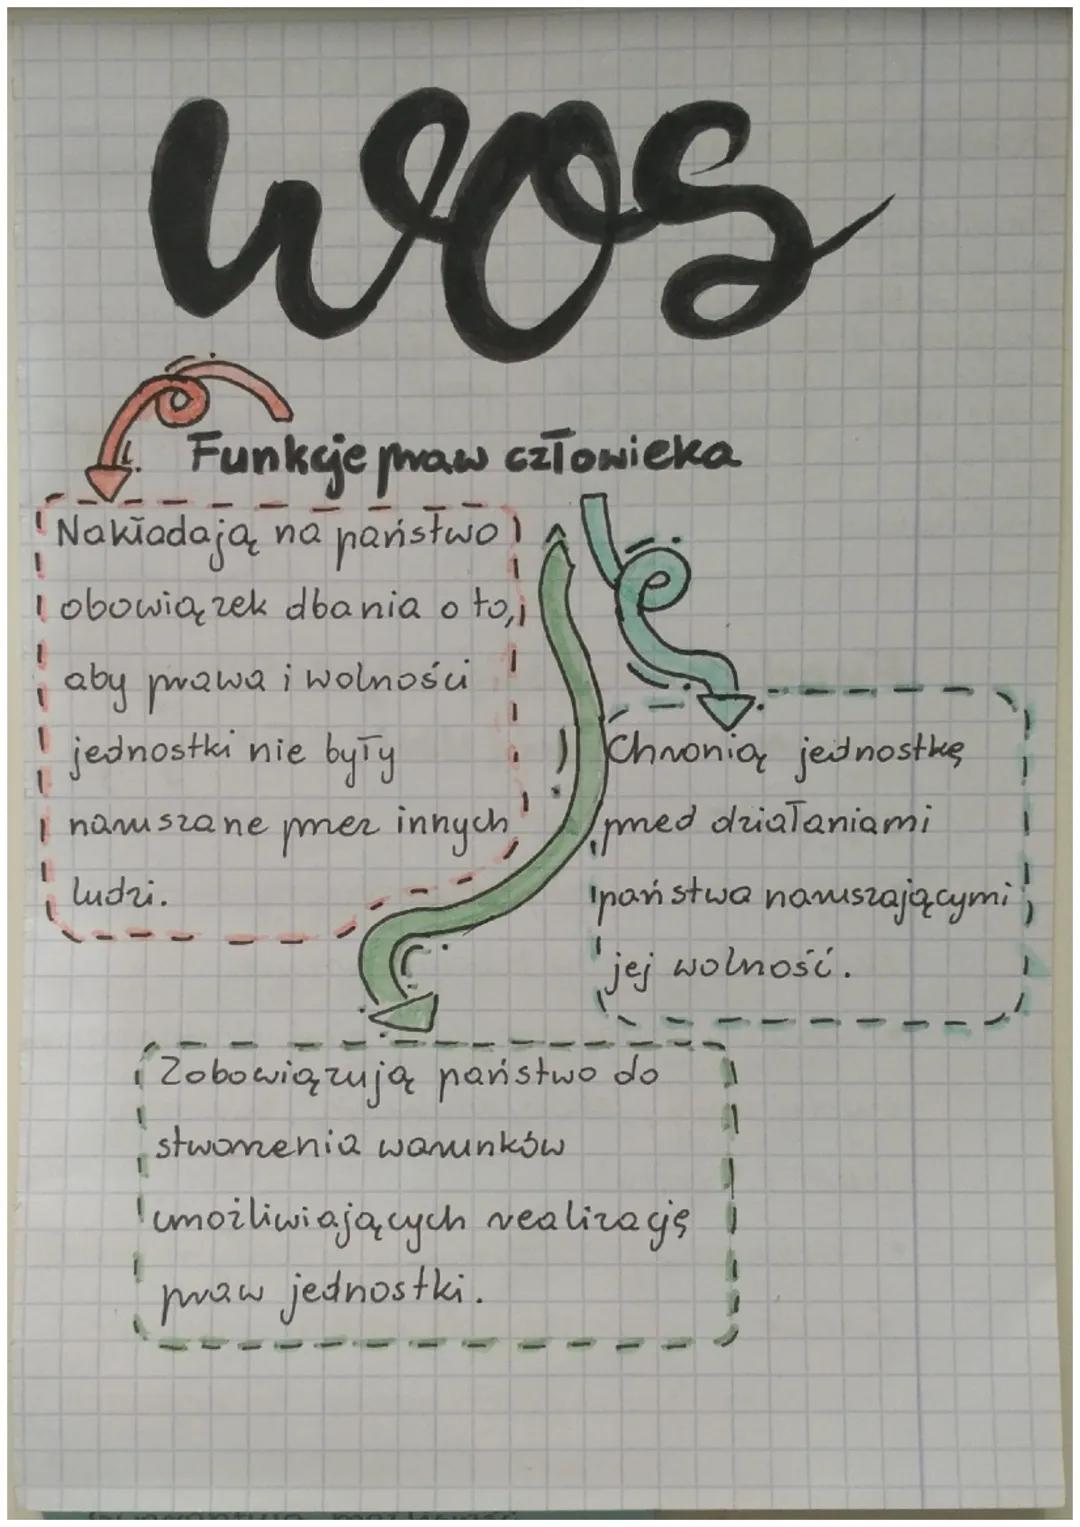 WOS
Funkcje praw człowieka
Nakładają na państwo
obowiązek dbania o to,
aby prawa i wolności
jednostki nie były
naruszane przez innych
ludzi.
Chronią jednostkę
przed działaniami
państwa naruszającymi
jej wolność.
Zobowiązują państwo do
stworzenia warunków
umożliwiających realizację
praw jednostki.